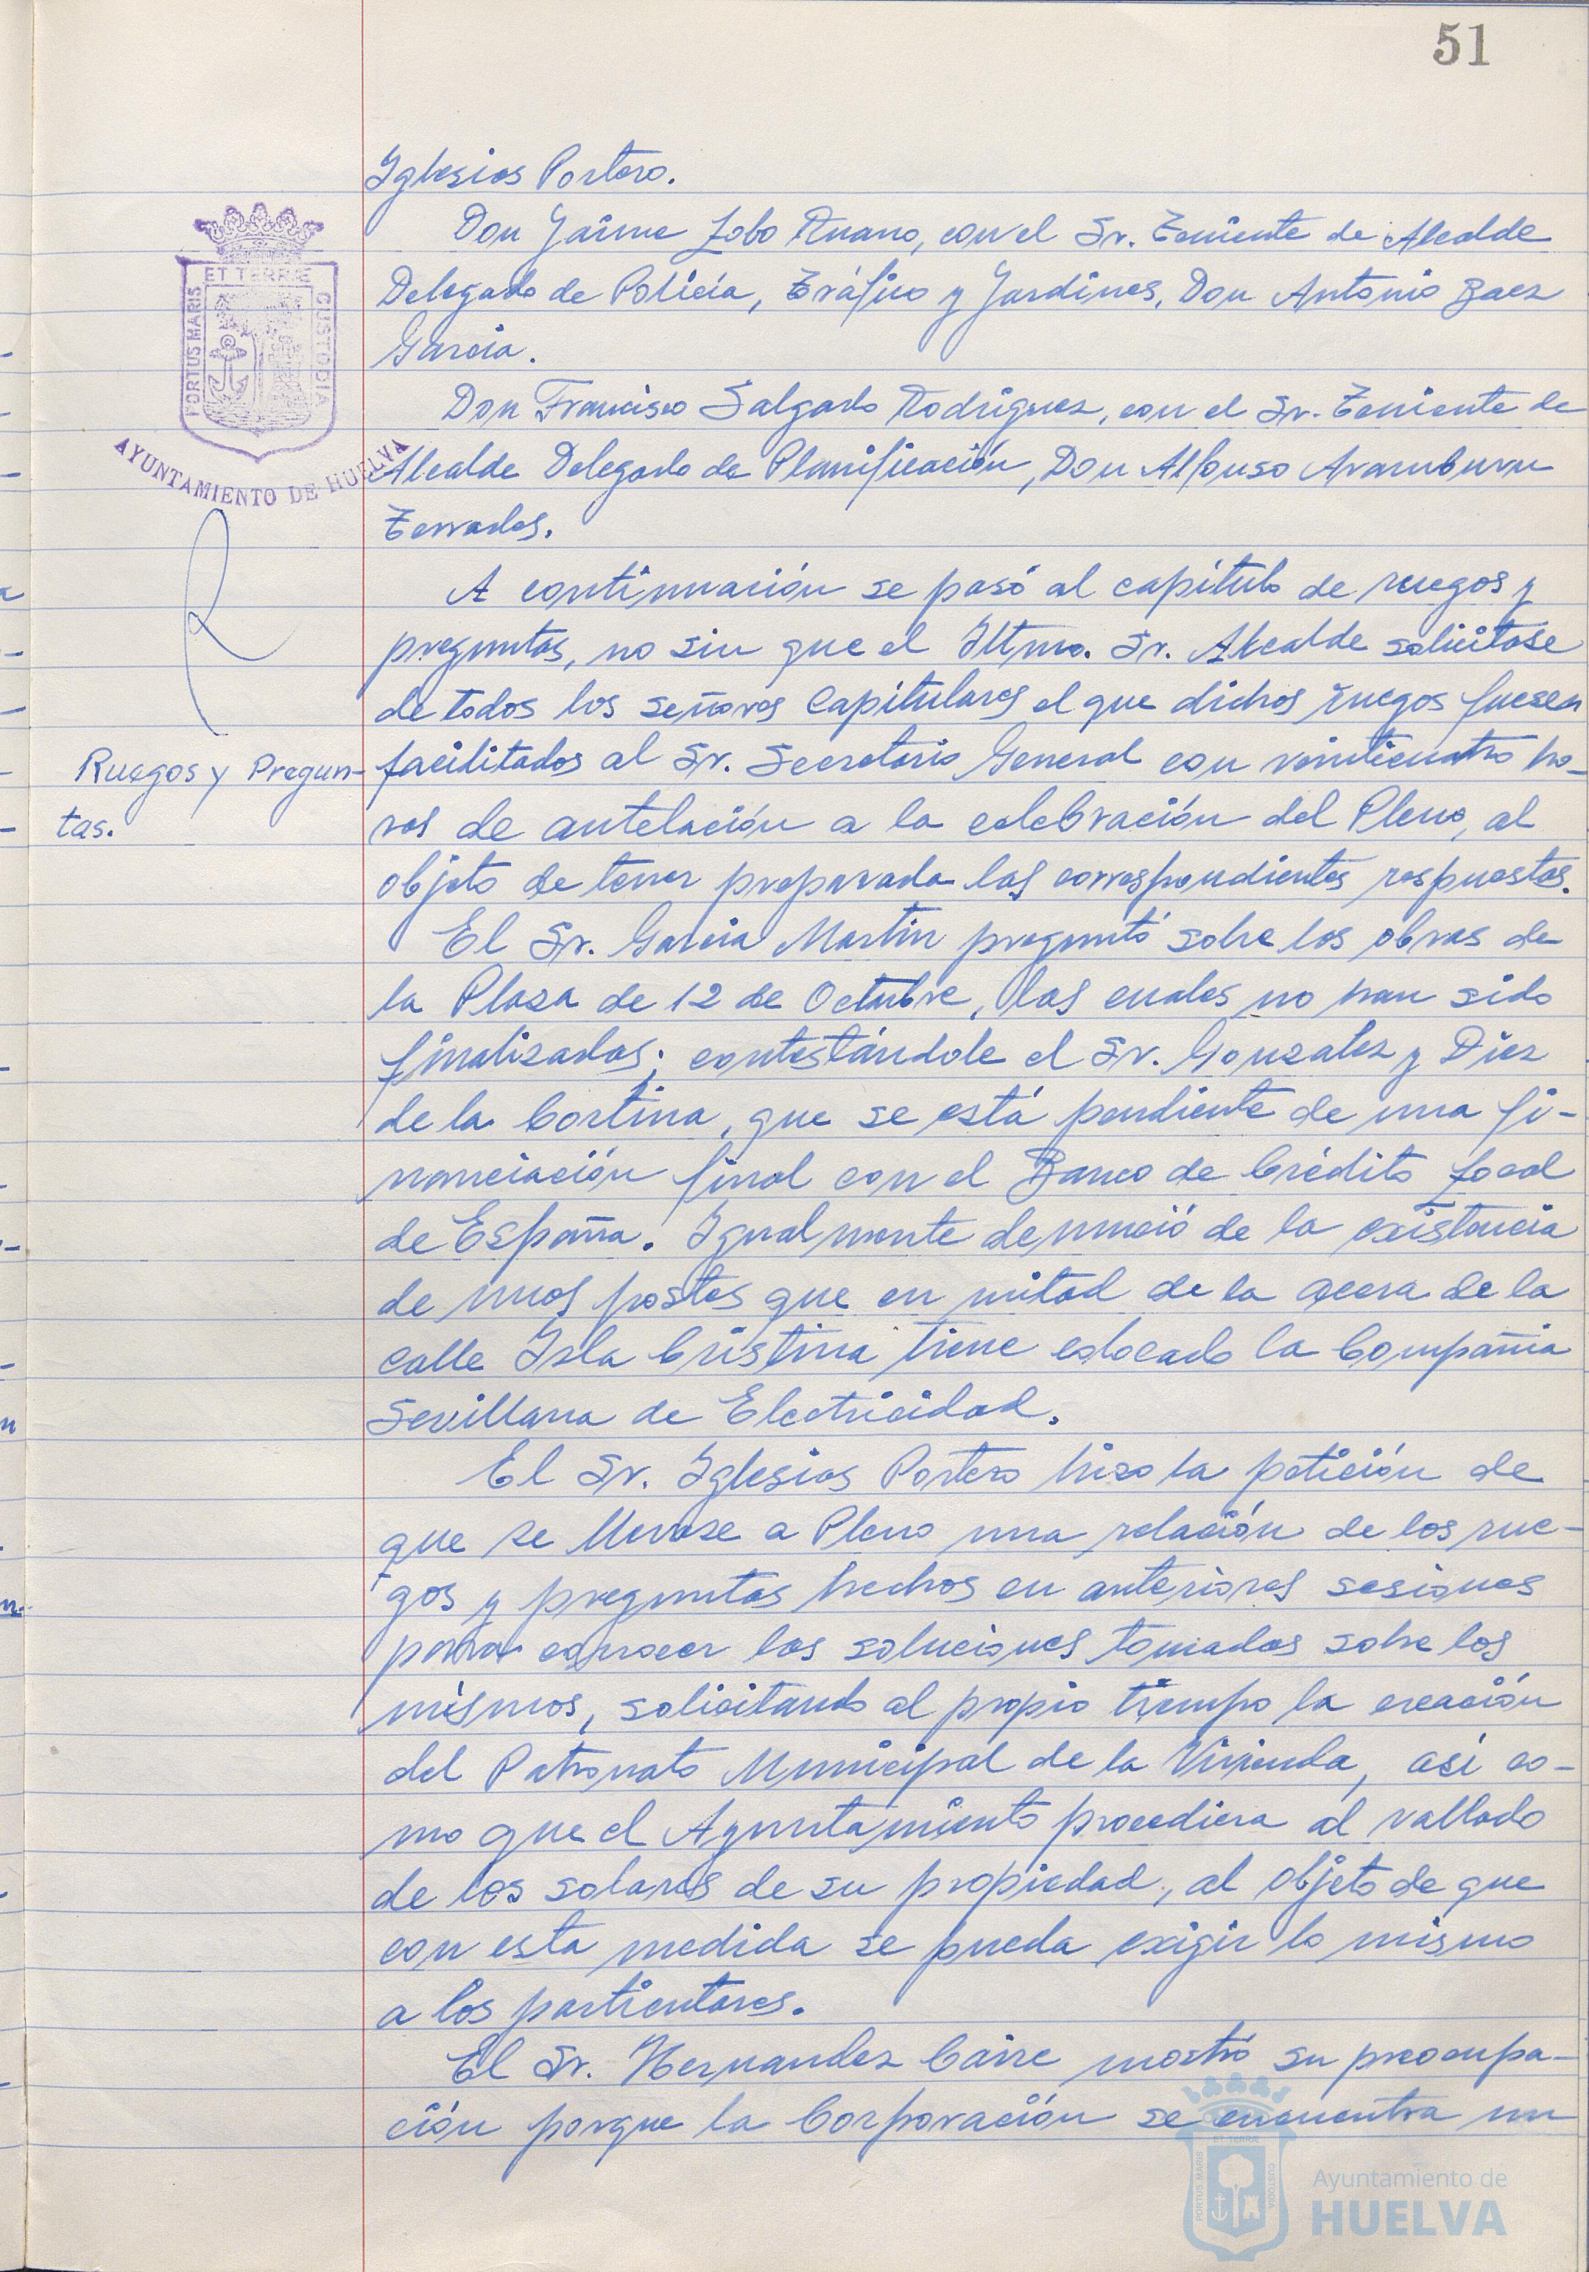 51
Iglesias Portero.
Don Jaime Lobo Ruano, con el Sr. Teniente de Alcalde
Delegado de Policía, Tráfico y Jardines, Don Antonio Baez
García.
Don Francisco Salgado Rodríguez, con el Sr. Teniente de
Alcalde Delegado de Planificación, Don Alfonso Aramburu
Terrades.
A continuación se pasó al capítulo de ruegos y
preguntas, no sin que el Iltmo. Sr. Alcalde solicitase
de todos los señores Capitulares el que dichos ruegos fuesen
Ruegos y Pregun-
tas.
facilitados al Sr. Secretario General con veinticuatro ho-
ras de antelación a la celebración del Pleno, al
objeto de tener preparada las correspondientes respuestas.
El Sr. García Martín preguntó sobre las obras de
la Plaza de 12 de Octubre, las cuales no han sido
finalizadas; contestándole el Sr. Gonzalez y Díez
de la Cortina, que se está pendiente de una fi-
nanciación final con el Banco de Crédito Local
de España. Igualmente denunció de la existencia
de unos postes que en mitad de la acera de la
calle Isla Cristina tiene colocado la Compañia
Sevillana de Electricidad.
El Sr. Iglesias Portero hizo la petición de
que se llevase a Pleno una relación de los rue-
gos y preguntas hechos en anteriores sesiones
para conocer las soluciones tomadas sobre los
mismos, solicitando al propio tiempo la creación
del Patronato Municipal de la Vivienda, así co-
mo que el Ayuntamiento procediera al vallado
de los solares de su propiedad, al objeto de que
con esta medida se pueda exigir lo mismo
a los particulares.
El Sr. Hernandez Caire mostró su preocupa-
ción porque la Corporación se encuentra un
ET TERRÆ
PORTUS MARIS
CUSTODIA
AYUNTAMIENTO DE HUELVA
Ayuntamiento de
HUELVA